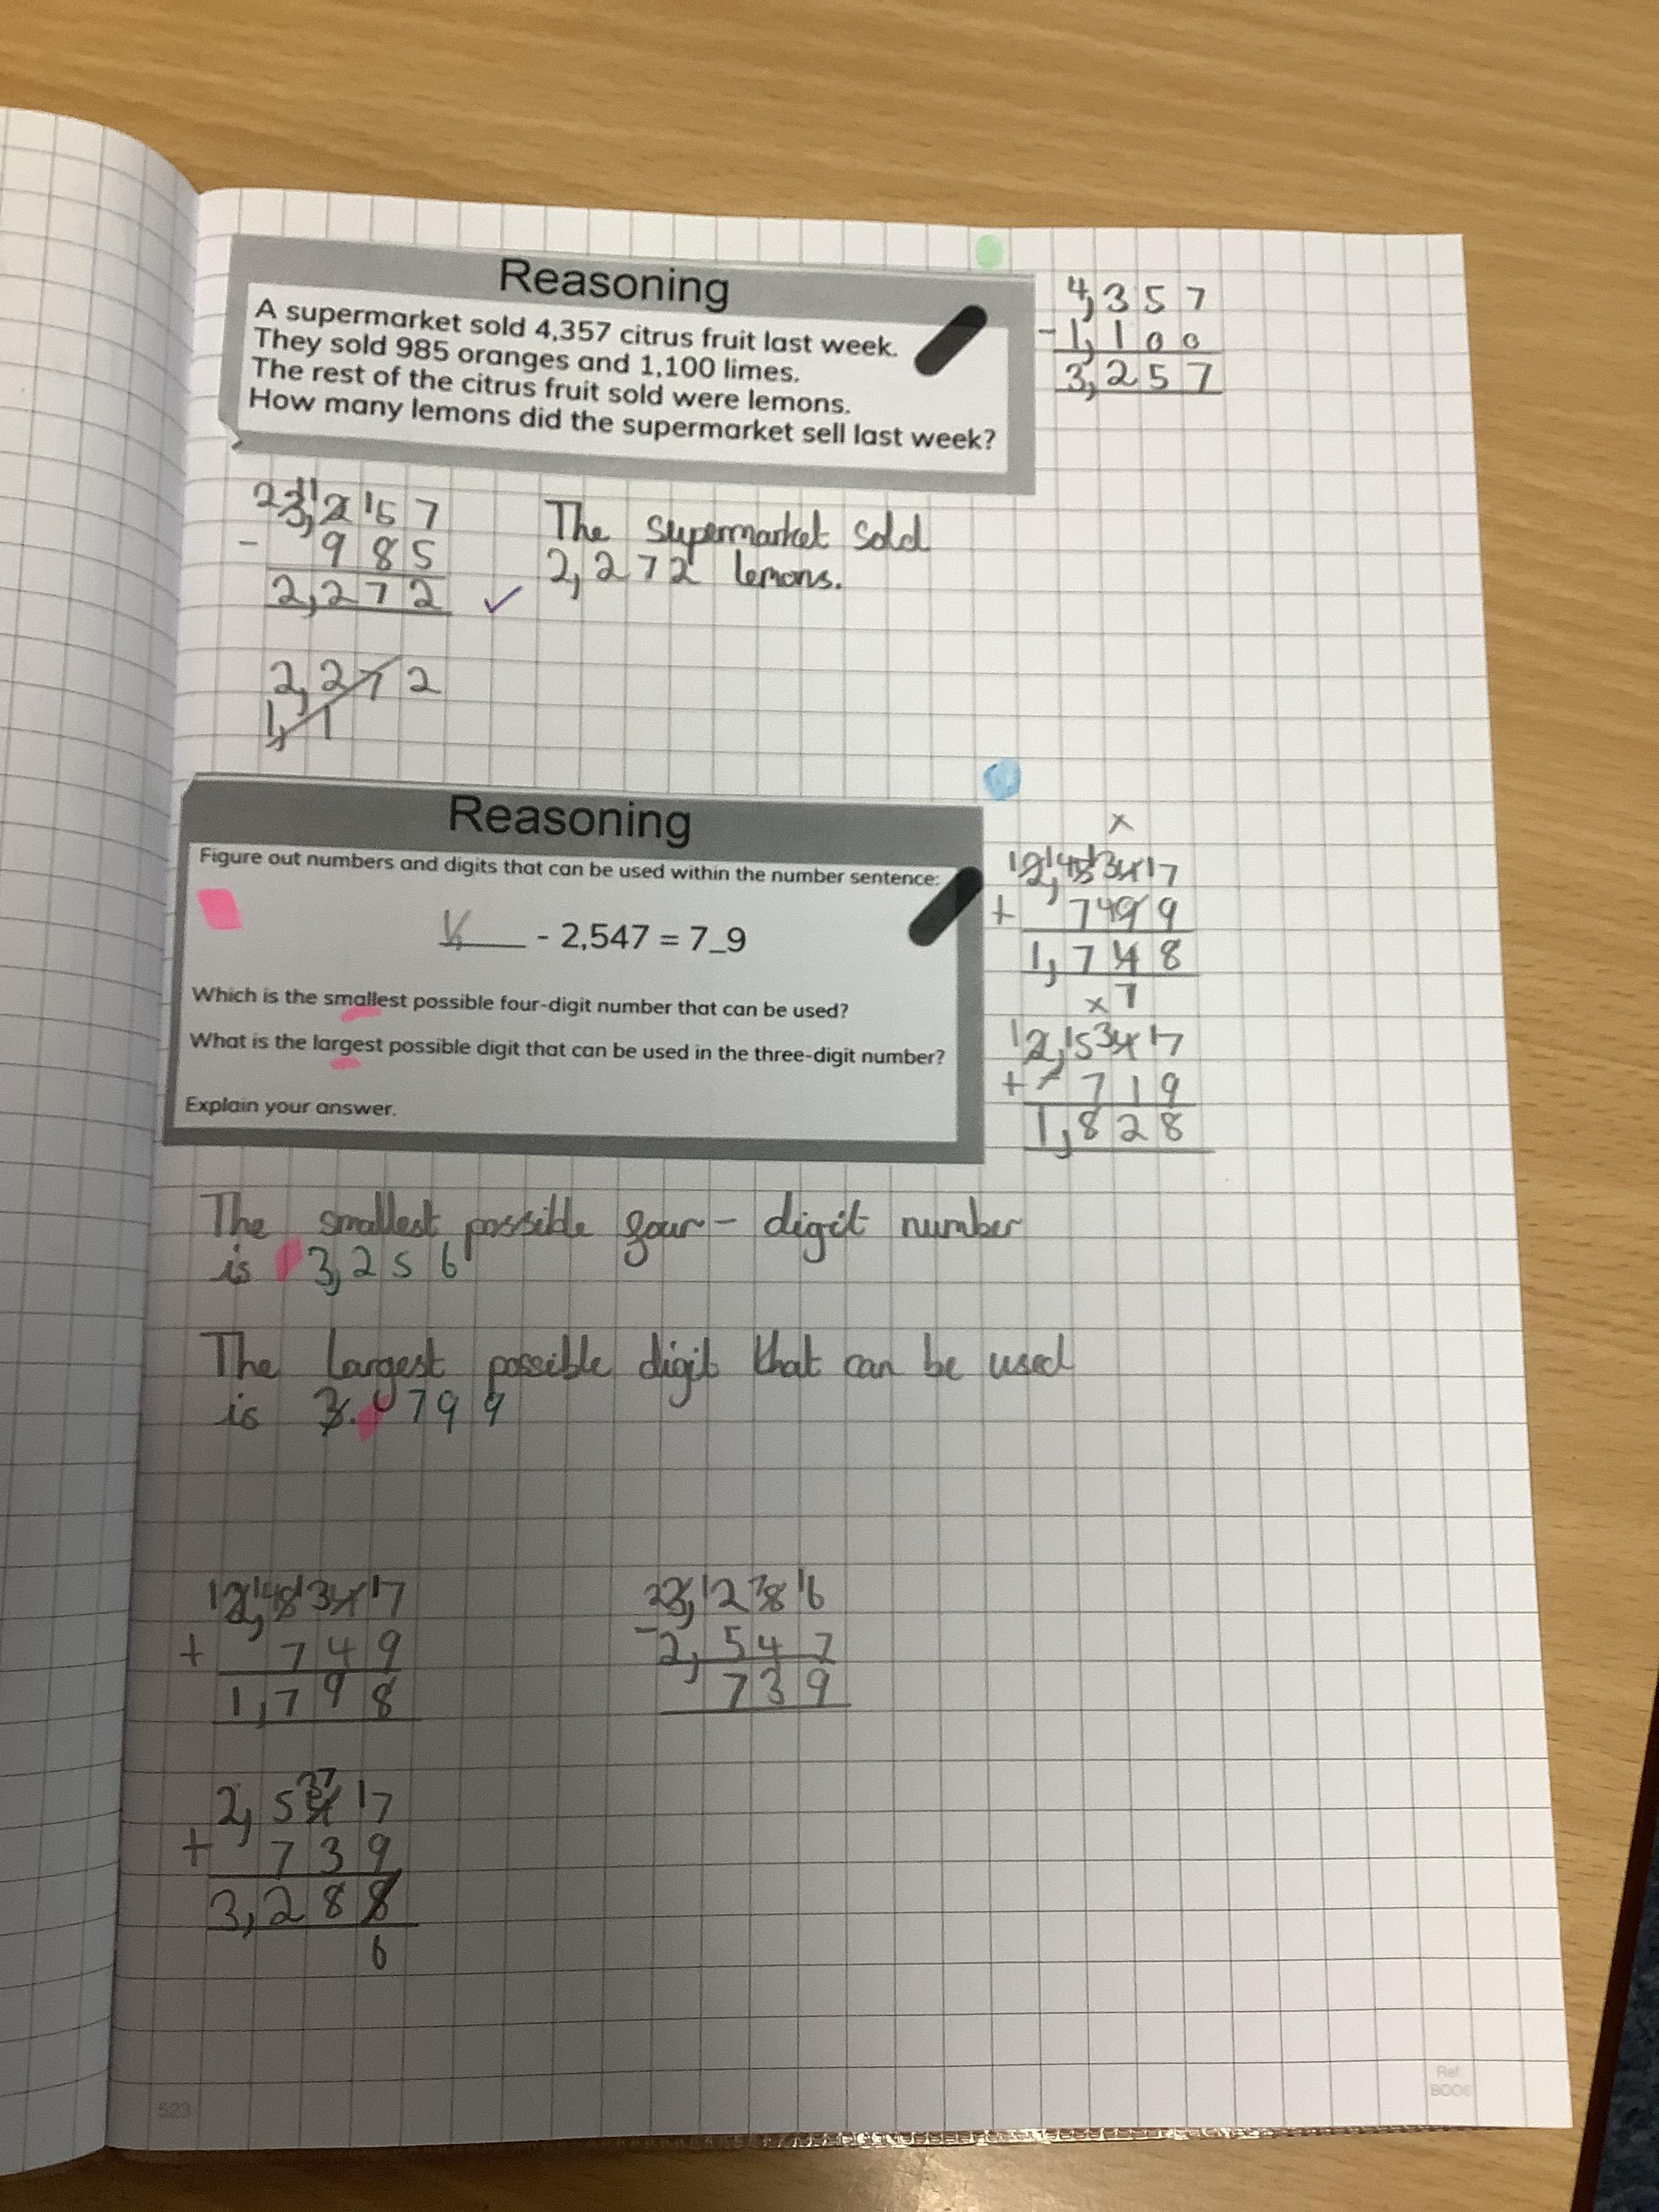 Reasoning
A supermarket sold 4,357 citrus fruit last week.
They sold 985 oranges and 1,100 limes.
The rest of the citrus fruit sold were lemons.
How many lemons did the supermarket sell last week?
4,357
-1,100
3,257
- 985
2,272
The supermarket sold
2,272 lemons.
2,272
1,1
Reasoning
Figure out numbers and digits that can be used within the number sentence:
- 2,547 = 7_9
Which is the smallest possible four-digit number that can be used?
What is the largest possible digit that can be used in the three-digit number?
Explain your answer.
x
x 7
+ 719
1,828
The smallest possible four-digit number
is 3,256
The largest possible digit that can be used
is 799
+ 749
1,798
- 2,547
739
+ 739
3,288
6
523
Ref:
BOO6